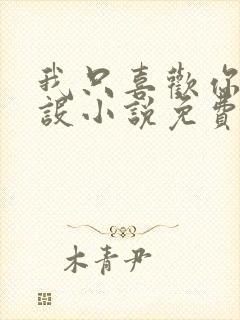 我只喜歡你
設小說免費
木青尹